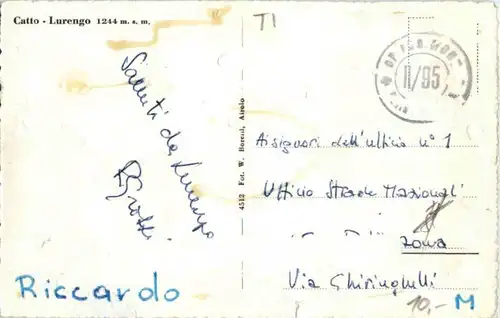 Catto - Lurengo 1244 m. s. m.
TI
II/95
Saluti da Lurengo
4512 Fot. W. Borelli, Airolo
Ai signori dell'ufficio n° 1
Ufficio Strade Nazionali
Zona
Via Ghiringhelli
10,- M
Riccardo